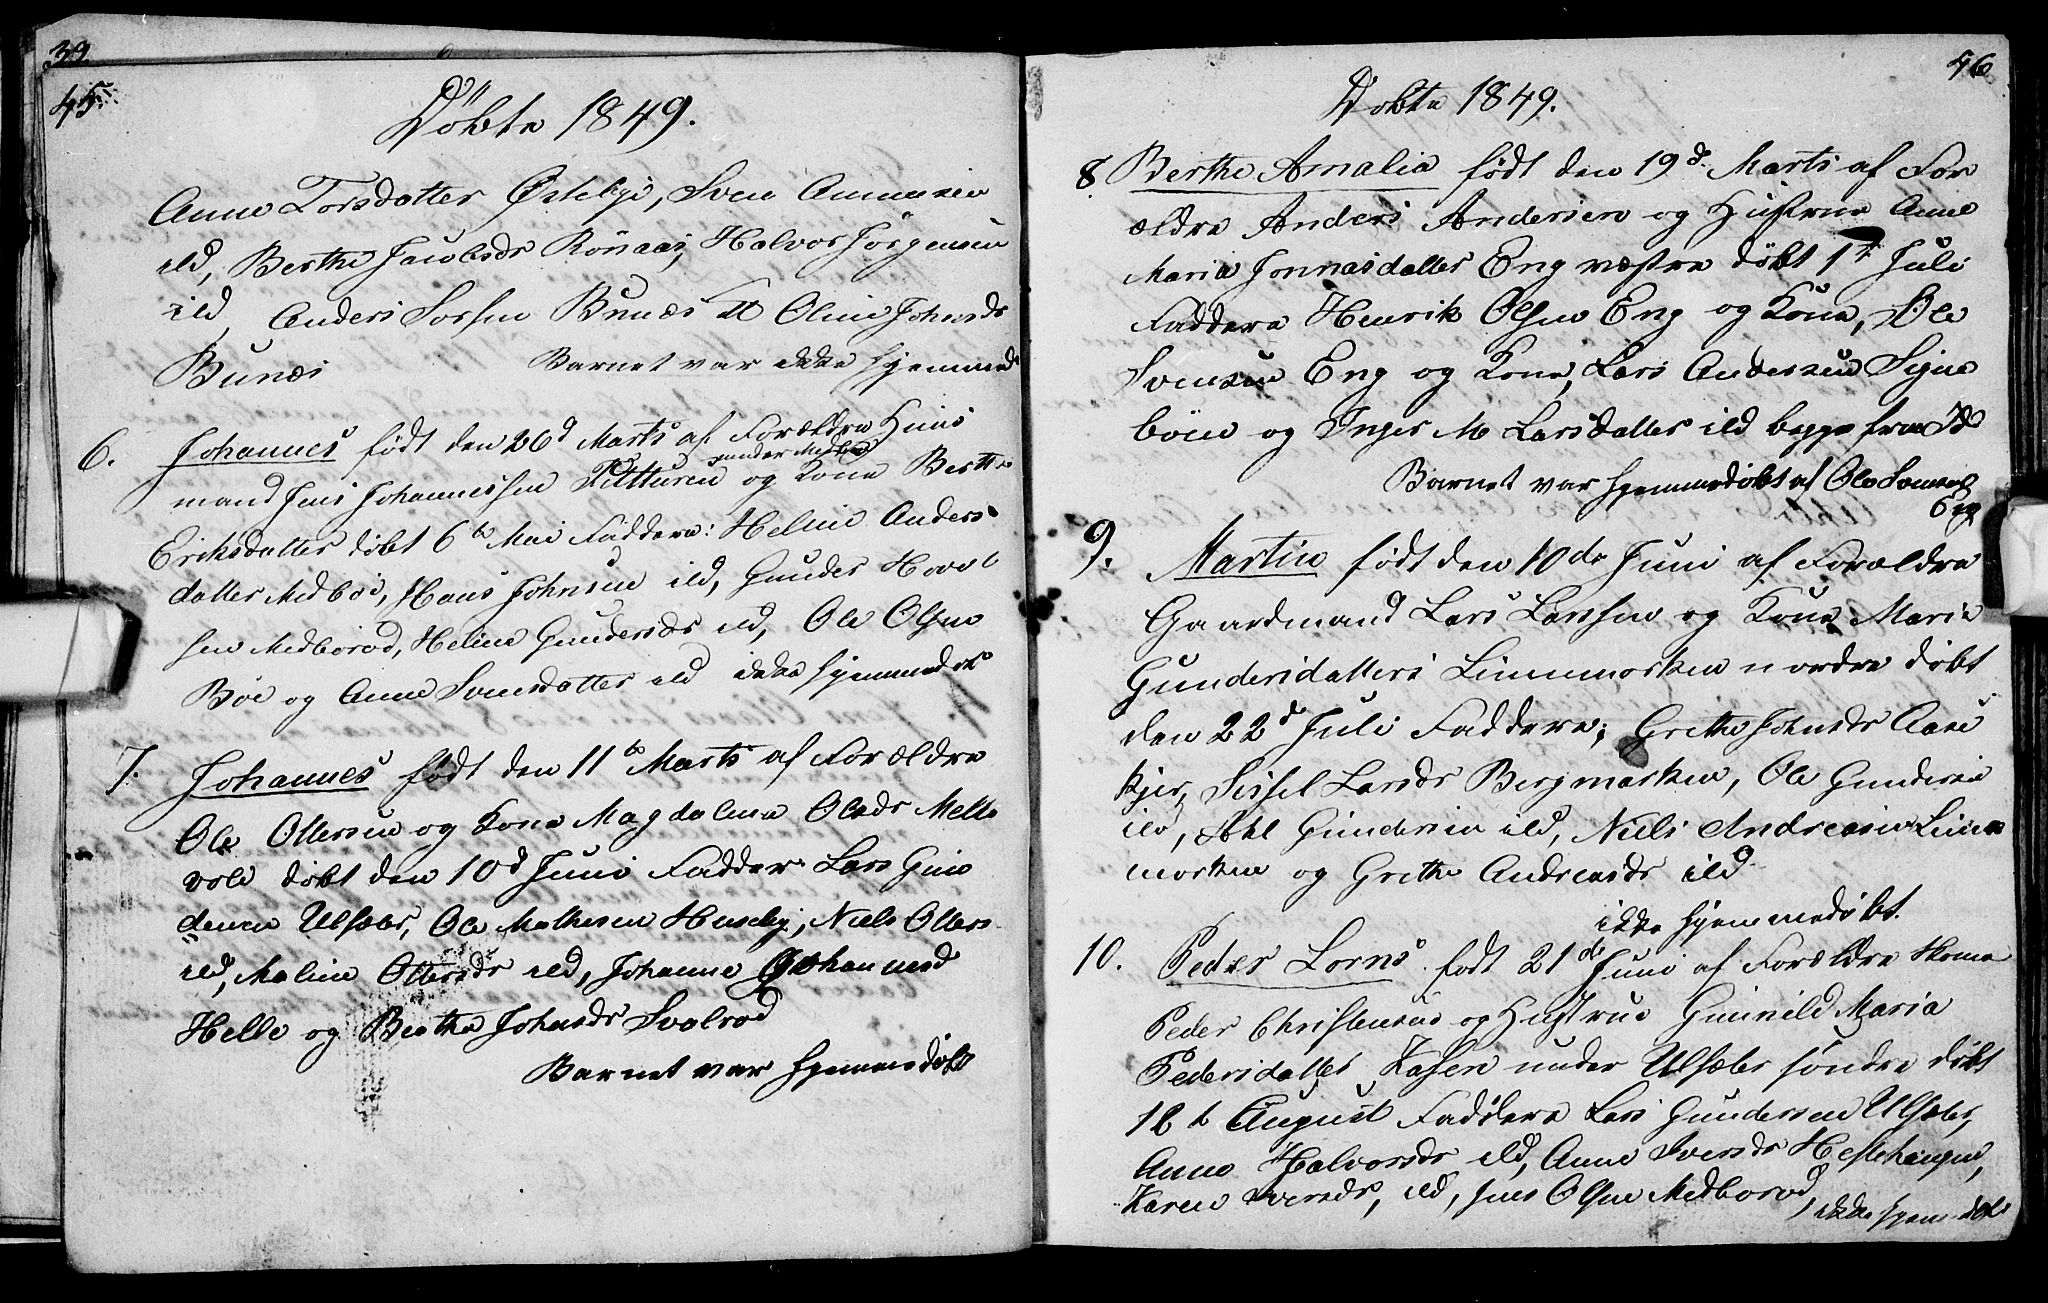 39
45.
Döbte 1849.
Anne Torsdatter Østebye, Sven Annensen
ild, Berthe Jacobsds Rönaas, Halvor Jörgensen
ild, Anders Torsen Bunæs & Oline Johnsds
Bunæs Barnet var ikke hjemmed
6. Johannes födt den 26d Marts af Forældre Huus
under Medbøe
mand Jens Johannessen og Kone Berthe
Eriksdatter döbt 6te Mai Faddere: Heline Anders
datter Medböe, Hans Johnsen ild, Gunder Hovel
sen Medboröd, Heline Gundersds ild, Ole Olsen
Böe og Anne Svensdatter ild ikke hjemmedöbt
7. Johannes födt den 11te Marts af Forældre
Ole Ottersen og Kone Magdalena Olsds Melle
vold döbt den 10d Juni Fadder Lars Gun
dersen Ulsæter, Ole Mathesen Huseby, Niels Otters
ild, Maline Ottersds ild, Johanne Johannesd
Helle og Berthe Johnsds Svalröd
Barnet var hjemmedöbt
46
Döbte 1849.
8 Berthe Amalia födt den 19d. Marts af For
ældre Anders Andersen og Hustrue Anne
Maria Jonnasdatter Eng vestre döbt 1te Juli
Faddere Henrik Olsen Eng og Kone, Ole
Svensen Eng og Kone, Lars Andersen Signe
böen og Inger M Larsdatter ild begge fra Ids
Barnet var hjemmedöbt af Ole Svensen
Eng
9. Martin födt den 10de Juni af Forældre
Gaardmand Lars Larssen og Kone Maria
Gundersdatter Linnmorken nordre döbt
den 22d Juli Faddere; Grethe Johnsds Aase
kjer, Sissel Larsds Bergmorken, Ole Gundersen
ild, Gundersen ild, Niels Andreasen Linn
morken og Grethe Andreasds ild
ikke hjemmedöbt.
10. Peder Lorns födt 21de Juni af Forældre Skoma
Peder Christensen og Hustrue Gunnild Maria
Pedersdatter Kasen under Ulsæter söndre döbt
12t August Faddere Lars Gundersen Ulsæter,
Anne Halvorsds ild, Anne Iversds Hestehaugen,
Karen Iversds, ild, Jens Olsen Medboröd, ikke hjem döbt